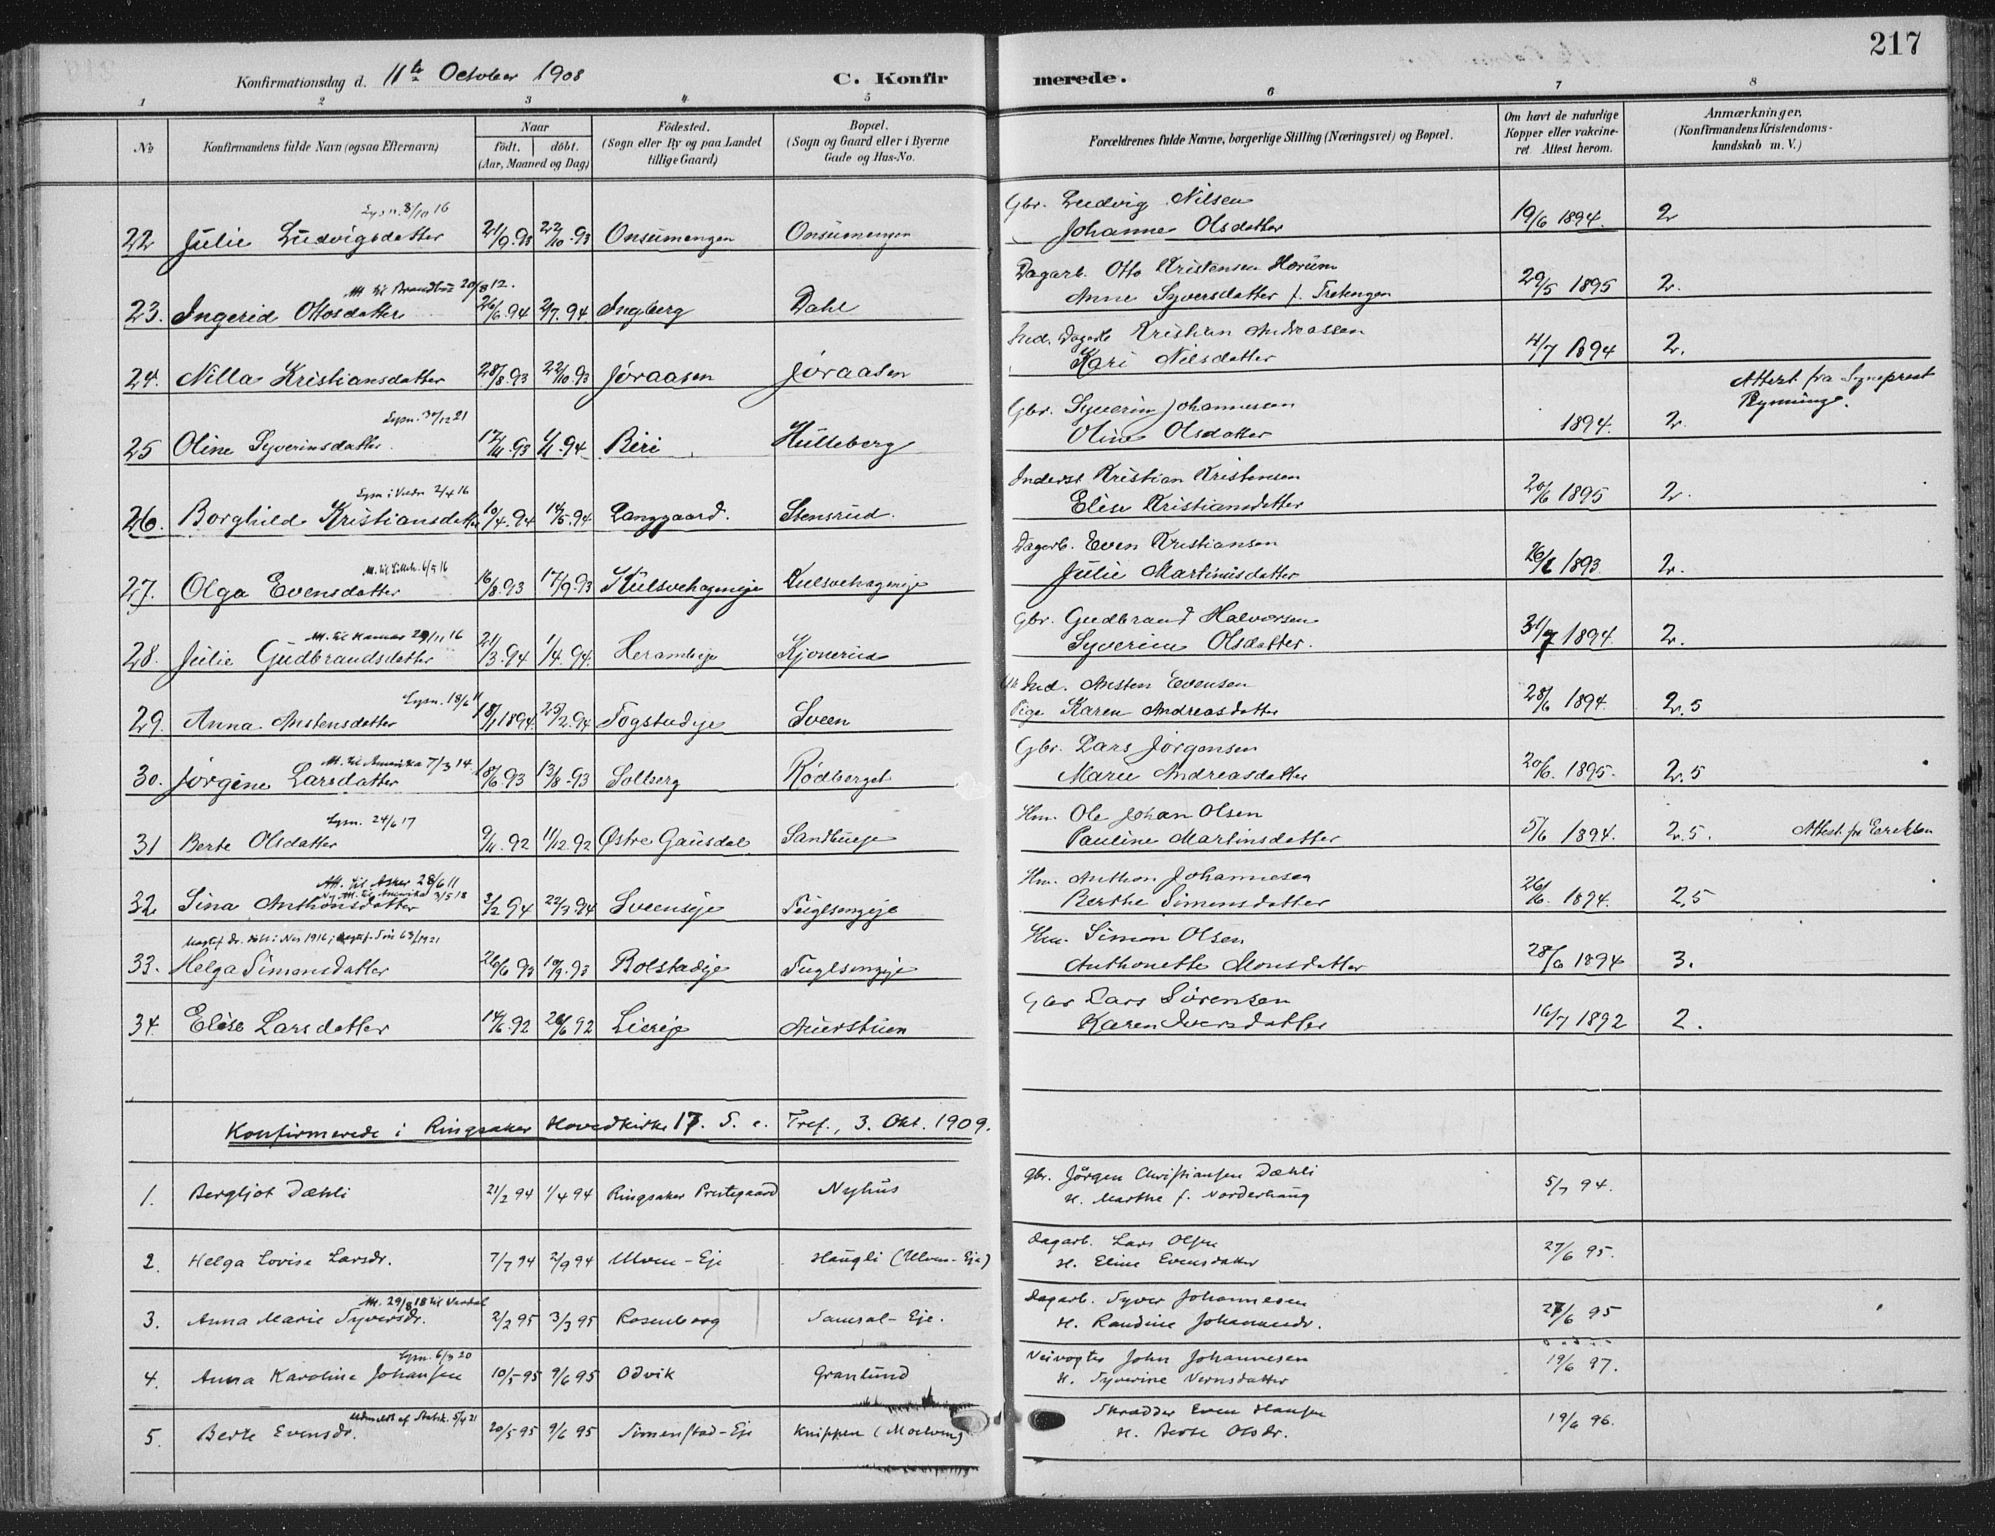 217
Konfirmationsdag d. 11te October 1908 C. Konfirmerede.
1 2 3 4 5 6 7 8
No Konfirmandens fulde Navn (ogsaa Efternavn) Naar födt. döbt. (Aar, Maaned og Dag) Födested. (Sogn eller By og paa Landet tillige Gaard) Bopæl. (Sogn og Gaard eller i Byerne Gade og Hus-No. Forældrenes fulde Navne, borgerlige Stilling (Næringsvei) og Bopæl. Om havt de naturlige Kopper eller vakcineret. Attest herom. Anmærkninger. (Konfirmandens Kristendomskundskab m. V.)
Lysn. 8/10 16
22 Julie Ludvigsdatter 21/9.93 22/10.93 Onsumengen Onsumengen Gbr. Ludvig Nilsen Johanne Olsdatter 19/6 1894. 2
Att. til Brandbu 20/8 12.
23. Ingerid Ottosdatter 26/6.94 2/7.94 Ingberg Dahl Dagarb. Otto Kristensen Horum Anne Syversdatter f. Tretengen 29/5 1895 2.
24. Nilla Kristiansdatter 28/8.93 22/10.93 Jøraasen Jøraasen Ind. Dagarb Kristian Andreassen Kari Nilsdatter 4/7 1894 2.
Lysn. 30/12 21
25 Oline Syverinsdatter. 17/11.93 1/1.94 Biri Hulleberg Gbr. Syverin Johannesen Oline Olsdatter 1894. 2. Attest fra Sogneprest
Lysn i Vardn 2/4 16
26. Borghild Kristiansdatter 10/4.94 14/5.94 Langgaard. Stensrud. Inderst Kristian Kristensen Elise Kristiansdatter 20/6 1895 2.
27. Olga Evensdatter 16/8.93 17/9.93 Kulsvehageneje Kulsvehageneje Dagarb. Even Kristiansen Julie Martinusdatter 26/6 1893. 2.
Att. til Hamar 29/11 16
28. Julie Gudbrandsdatter 21/3.94 1/4.94. Herambeje Kjonerud Gbr. Gudbrand Halvorsen Syverine Olsdatter. 31/7 1894. 2.
Lysn. 18/6 11
29. Anna Anstensdatter 18/1 1894. 25/2.94 Togstadeje Sveen Ind. Ansten Evensen Pige Karen Andreasdatter 28/6 1894. 2.5
Att. til Amerika 7/3 14.
30. Jørgine Larsdatter 18/6.93 13/8.93 Solberg Rødberget Gbr. Lars Jørgensen Marie Andreasdatter 20/6. 1895. 2.5
Lysn. 24/6 17
31 Berte Olsdatter 9/11.92 11/12.92 Østre Gausdal Sandbueje Hm. Ole Johan Olsen Pauline Martinsdatter 5/6 1894. 2.5. Attest fra Eriksen
Att. til Asker 28/6 11
Ny Att. til Amerika 3/5 18
32. Sina Anthonsdatter 2/2 94 22/3.94 Sveenseje Fuglsengeje Hm. Anthon Johannesen Berthe Simensdatter 26/6. 1894. 2,5
33. Helga Simensdatter 26/6 93 10/9.93 Bolstadeje Fuglsengeje Hm. Simon Olsen Anthonette Monsdatter 28/6 1894 3.
34. Elise Larsdatter 14/6.92 26/6 92 Liereje Auerstuen Gbr Lars Sørensen Karen Iversdatter 16/7 1892 2.
Konfirmerede i Ringsaker Hovedkirke 17. S. e. Tref., 3. Okt. 1909.
1. Bergljot Dæhli 21/2 94 1/4 94 Ringsaker Prestegaard Nyhus Gbr. Jörgen Christiansen Dæhli H. Marthe f. Norderhaug 5/7 94.
2. Helga Lovise Larsdr. 7/7 94 2/9 94 Ulven-Eje Haugli (Ulven-Eje) Dagarb. Lars Olsen H. Eline Evensdatter 27/6 95.
Att. 29/8 18 til Vardal
3. Anna Marie Syversdr. 2/2 95 3/3 95 Rosenborg Samsal-Eje. Dagarb. Syver Johannesen H. Randine Johannesdr. 27/6 95
Lysn. 6/3 20
4. Anna Karoline Johansen 10/5 95 9/6 95 Odvik Granlund Veivogter John Johannesen H. Syverine Nernsdatter 19/6 97.
Udmeldt af Statsk. 5/4 21
5. Berte Evensdr. 20/5 95 9/6 95 Simenstad-Eje Knippen (Moelven) Skrædder Even Hansen H. Berte Olsdr. 19/6 96.